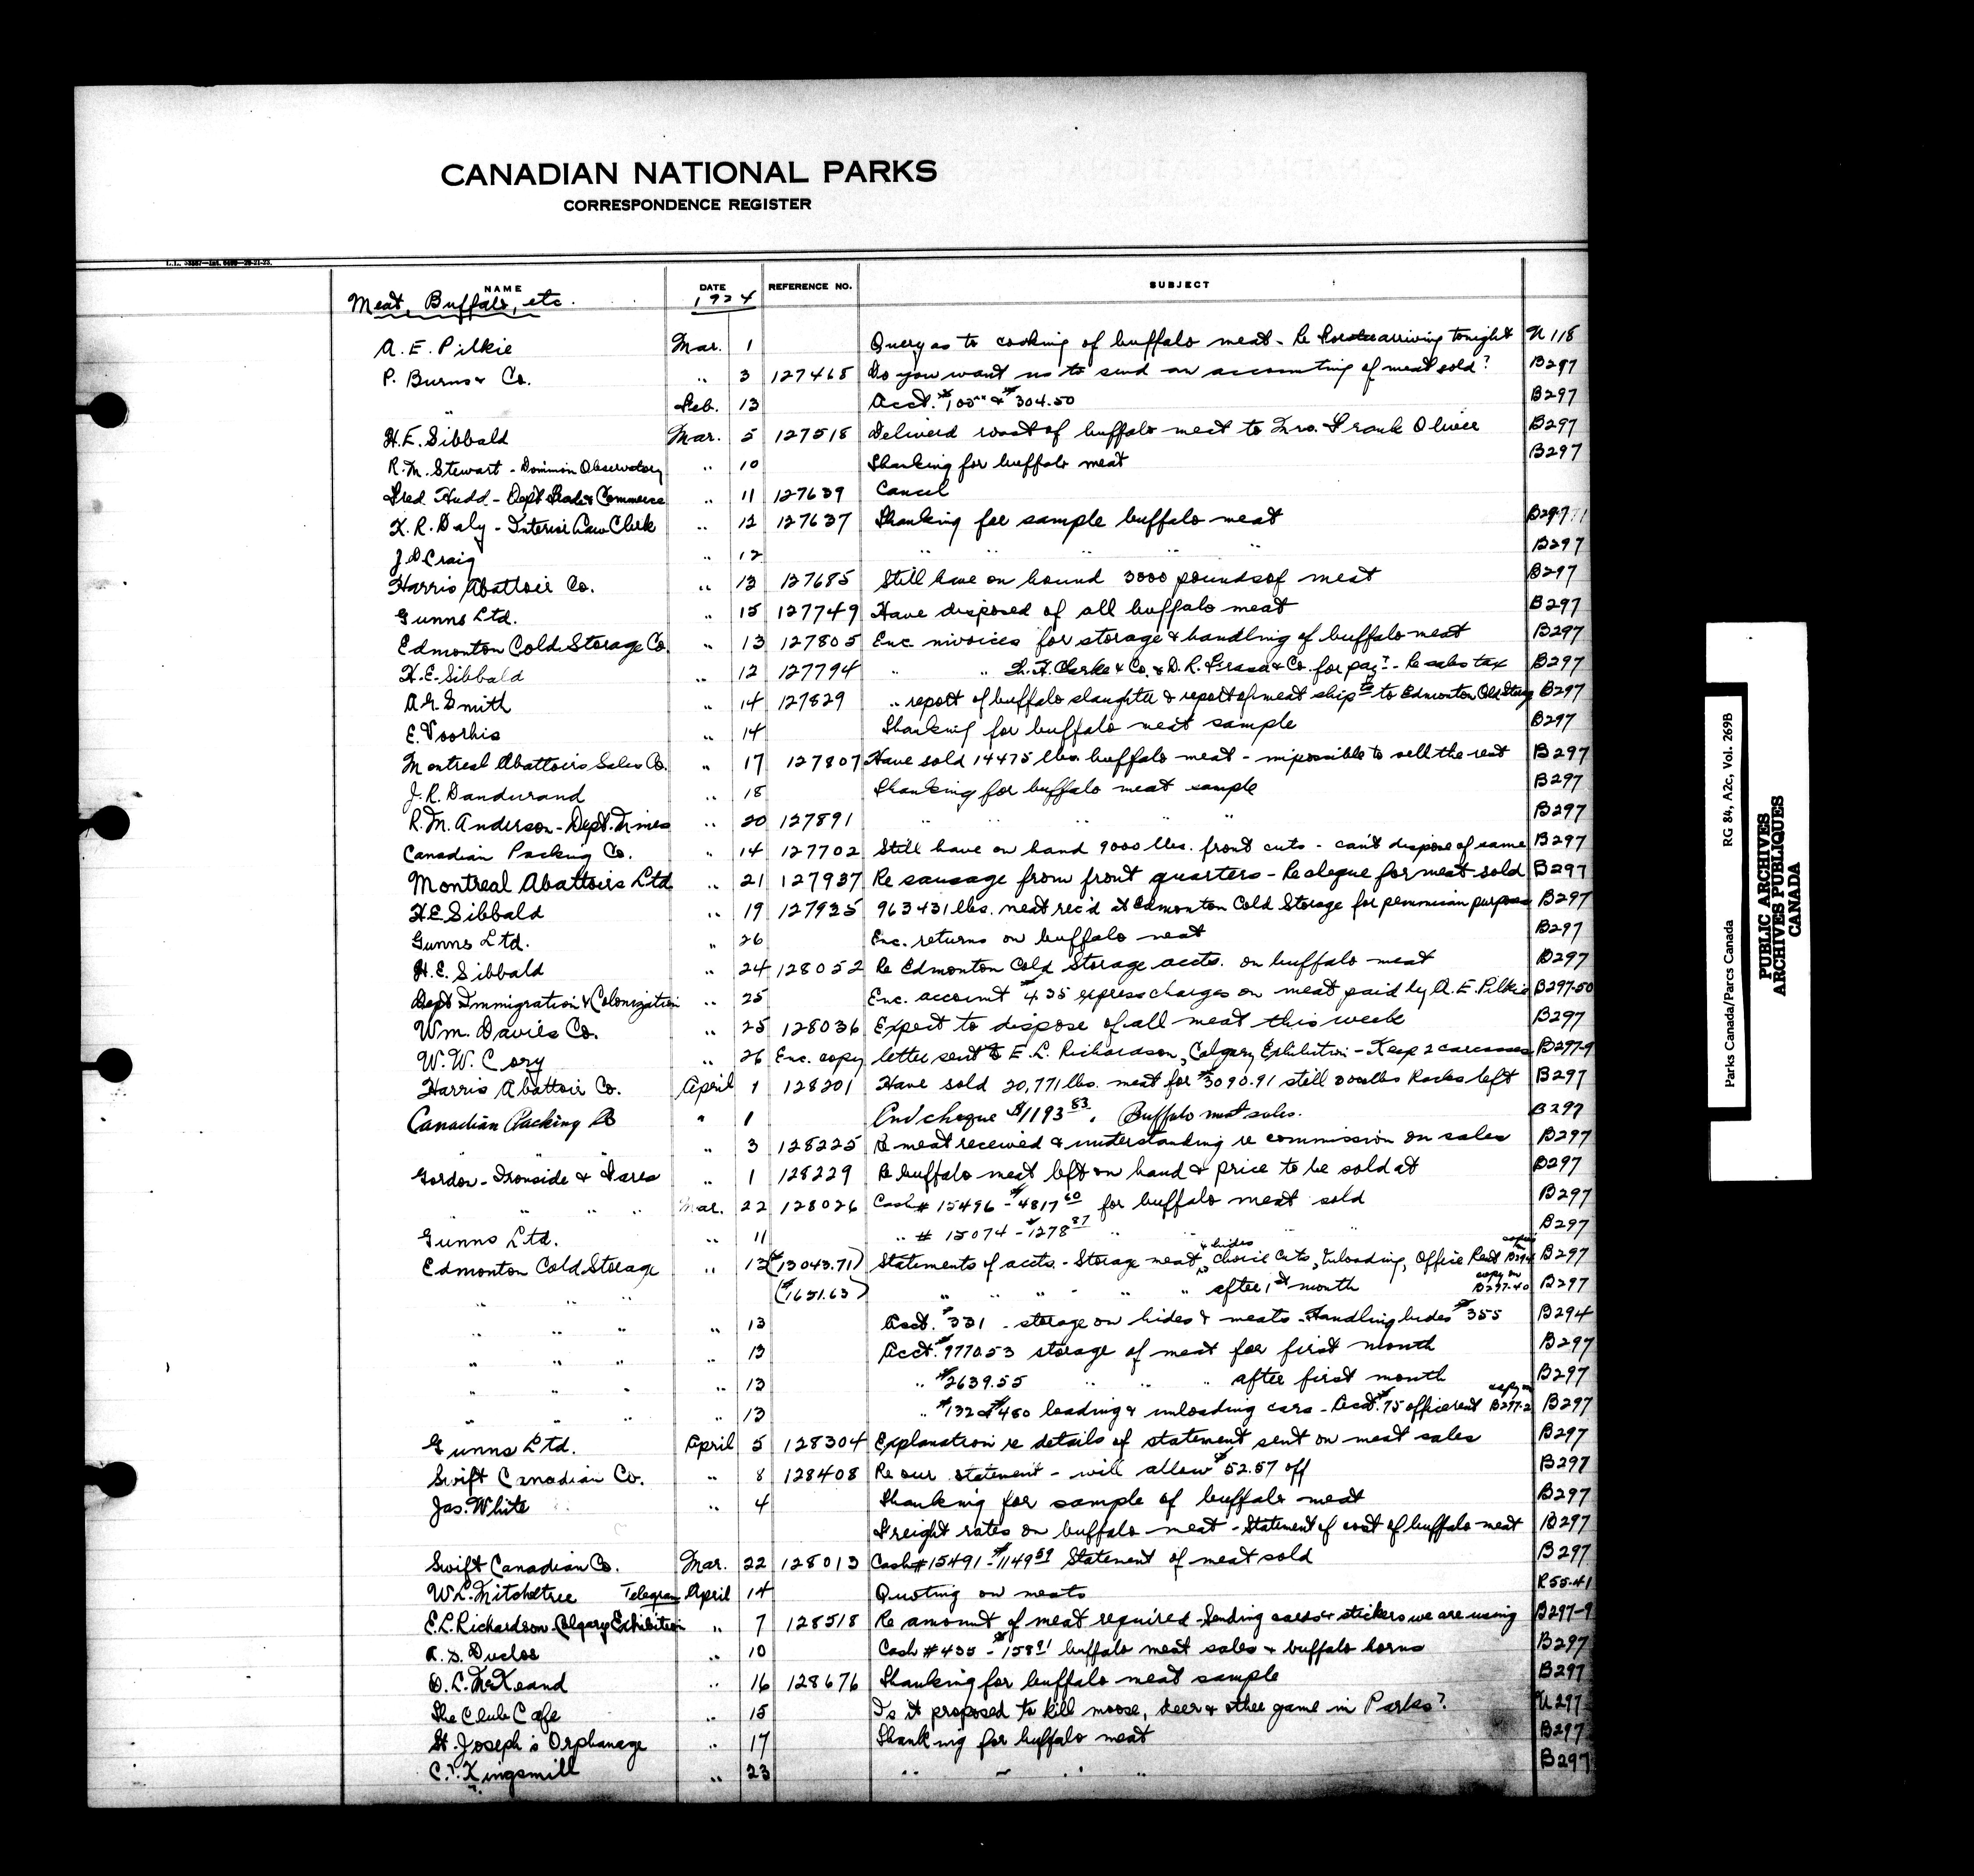 CANADIAN NATIONAL PARKS
CORRESPONDENCE REGISTER
NAME DATE REFERENCE NO. SUBJECT
Meat, Buffalo, etc. 1924
A. E. Pilkie Mar. 1 Query as to cooking of buffalo meat - Re arriving tonight N 118
P. Burns & Co. " 3 127468 Do you want us to send an accounting of meat sold? B297
" Feb. 13 Acct. $100 & $304.50 B297
H.E. Sibbald Mar. 5 127518 Deliverd roast of buffalo meat to Mrs. Frank Oliver B297
R.M. Stewart - Dominion Observatory " 10 Thanking for buffalo meat B297
Fred Hudd - Dept Trade & Commerce " 11 127639 Cancel
K. R. Daly - Interior Law Clerk " 12 127637 Thanking for sample buffalo meat B297
J D Craig " 12 " " " " " B297
Harris Abattoir Co. " 13 127685 Still have on hound 3000 pounds of meat B297
Gunns Ltd. " 15 127749 Have disposed of all buffalo meat B297
Edmonton Cold Storage Co " 13 127805 Enc invoices for storage & handling of buffalo meat B297
H.E. Sibbald " 12 127794 " " Clarke & Co. & D.R. Fraser & Co. for pay? - Re sales tax B297
A.G. Smith " 14 127829 " report of buffalo slaughter & report of meat ship to Edmonton Cold Storage B297
E. Voorhis " 14 Thanking for buffalo meat sample B297
Montreal Abattoirs Sales Co. " 17 127807 Have sold 14475 lbs. buffalo meat - impossible to sell the rest B297
J. R. Dandurand " 18 Thanking for buffalo meat sample B297
R.M. Anderson - Dept. Mines " 20 127891 " " " " " B297
Canadian Packing Co. " 14 127702 Still have on hand 9000 lbs. front cuts - can't dispose of same B297
Montreal Abattoirs Ltd " 21 127937 Re sausage from front quarters - Re cheque for meat sold B297
H.E. Sibbald " 19 127935 963431 lbs. meat rec'd at Edmonton Cold Storage for pemmican purposes B297
Gunns Ltd. " 26 Enc. returns on buffalo meat B297
H.E. Sibbald " 24 128052 Re Edmonton Cold Storage accts. on buffalo meat B297
Dept Immigration & Colonization " 25 Enc. account $4.35 express charges on meat paid by A.E. Pilkie B297-50
Wm. Davies Co. " 25 128036 Expect to dispose of all meat this week B297
W.W. Cory " 26 Enc. copy letter sent to E. L. Richardson, Calgary Exhibition - Keep 2 carcasses B297-9
Harris Abattoir Co. April 1 128201 Have sold 20,771 lbs. meat for $3090.91 still lbs Racks left B297
Canadian Packing Co " 1 Encl cheque $1193 83. Buffalo meat sales. B297
" " " 3 128225 Re meat received & understanding re commission on sales B297
Gordon - Ironside & Fares " 1 128229 Re buffalo meat left on hand & price to be sold at B297
" " " Mar. 22 128026 Cash # 15496 - $4817 60 for buffalo meat sold B297
Gunns Ltd. " 11 " # 15074 - $1278 87 " " " B297
Edmonton Cold Storage " 13 ($13043.71) Statements of accts. - Storage meat & hides, Choice Cuts, Unloading, Office Rent copy on B294 B297
($1651.63) " " " " " " after 1st month copy on B297-40 B297
" " " " 13 Acct. $331 - storage on hides & meats - Handling hides $355 B294
" " " " 13 Acct. $9770.53 storage of meat for first month B297
" " " " 13 " $2639.55 " " " after first month B297
" " " " 13 " $132 & $480 loading & unloading cars - Acct. $75 office rent copy on B297-2 B297
Gunns Ltd. April 5 128304 Explanation re details of statement sent on meat sales B297
Swift Canadian Co. " 8 128408 Re our statement - will allow $52.57 off B297
Jas. White " 4 Thanking for sample of buffalo meat B297
Freight rates on buffalo meat - Statement of cost of buffalo meat B297
Swift Canadian Co. Mar. 22 128013 Cash # 15491 - $1149 59 Statement of meat sold B297
W.L. Mitcheltree Telegram April 14 Quoting on meats R55-41
E.L. Richardson - Calgary Exhibition " 7 128518 Re amount of meat required - Sending cards & stickers we are using B297-9
A. S. Duclos " 10 Cash # 435 - $158 91 buffalo meat sales & buffalo horns B297
D. L. McKeand " 16 128676 Thanking for buffalo meat sample B297
The Club Cafe " 15 Is it proposed to kill moose, deer & other game in Parks? U 297
St. Joseph's Orphanage " 17 Thanking for buffalo meat B297
C. Kingsmill " 23 " " " " B297
Parks Canada/Parcs Canada RG 84, A2c, Vol. 269B
PUBLIC ARCHIVES
ARCHIVES PUBLIQUES
CANADA